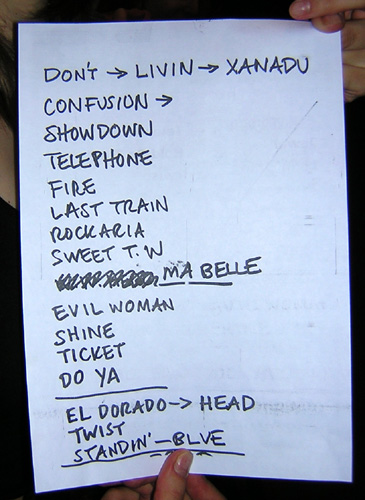 DON'T → LIVIN → XANADU
CONFUSION →
SHOWDOWN
TELEPHONE
FIRE
LAST TRAIN
ROCKARIA
SWEET T.W
MA BELLE
EVIL WOMAN
SHINE
TICKET
DO YA
EL DORADO → HEAD
TWIST
STANDIN' - BLVE